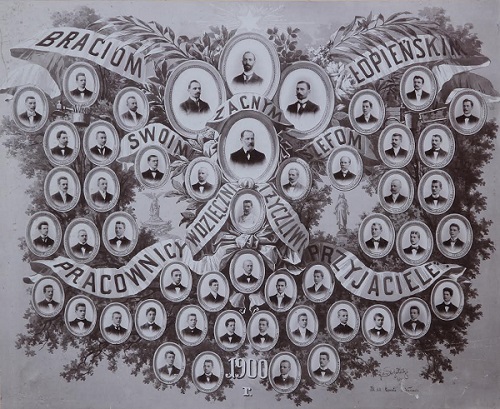 BRACIOM ŁOPIEŃSKIM
ZACNYM
SWOIM SZEFOM
WDZIĘCZNI I ŻYCZLIWI
PRACOWNICY PRZYJACIELE
1900
r.